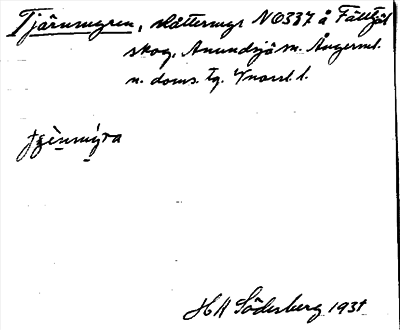 Tjärnmyren, slåttermyr N 0337 å Fälltjäl
skog, Anundsjö sn. Ångerml.
n. doms. tg. Vnorrl. l.
tjènmýra
H H Söderberg 1931